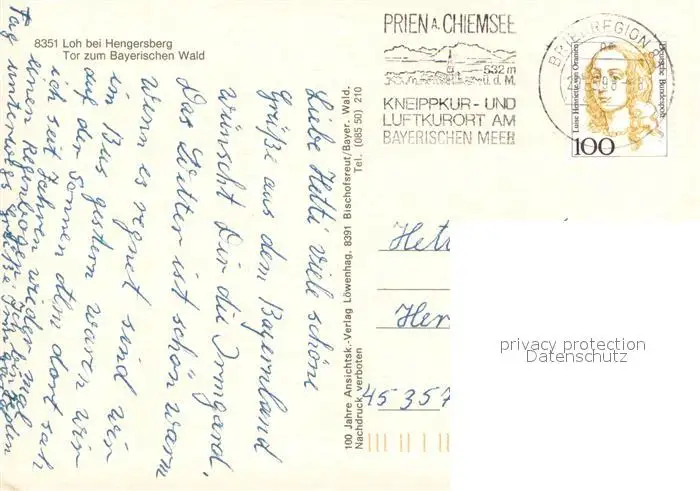 8351 Loh bei Hengersberg
Tor zum Bayerischen Wald
Liebe Hetti viele schöne
Grüße aus dem Bayernland
wünscht Dir die Irmgard,
Das Wetter ist schön warm
wenn es regnet sind wir
im Bus gestern waren wir
auf der Sonnen dort sah
ich seit Jahren wieder mal
einen Regenbogen
Tag unterwegs
100 Jahre Ansichtsk.-Verlag Löwenhag, 8391 Bischofsreut/Bayer. Wald.
Nachdruck verboten Tel. (085 50) 210
PRIEN A. CHIEMSEE
532 m
ü. d. M.
KNEIPPKUR- UND
LUFTKURORT AM
BAYERISCHEN MEER
BRIEFREGION 8
Luise Henriette von Oranien
Deutsche Bundespost
100
Het
Her
45357
privacy protection
Datenschutz